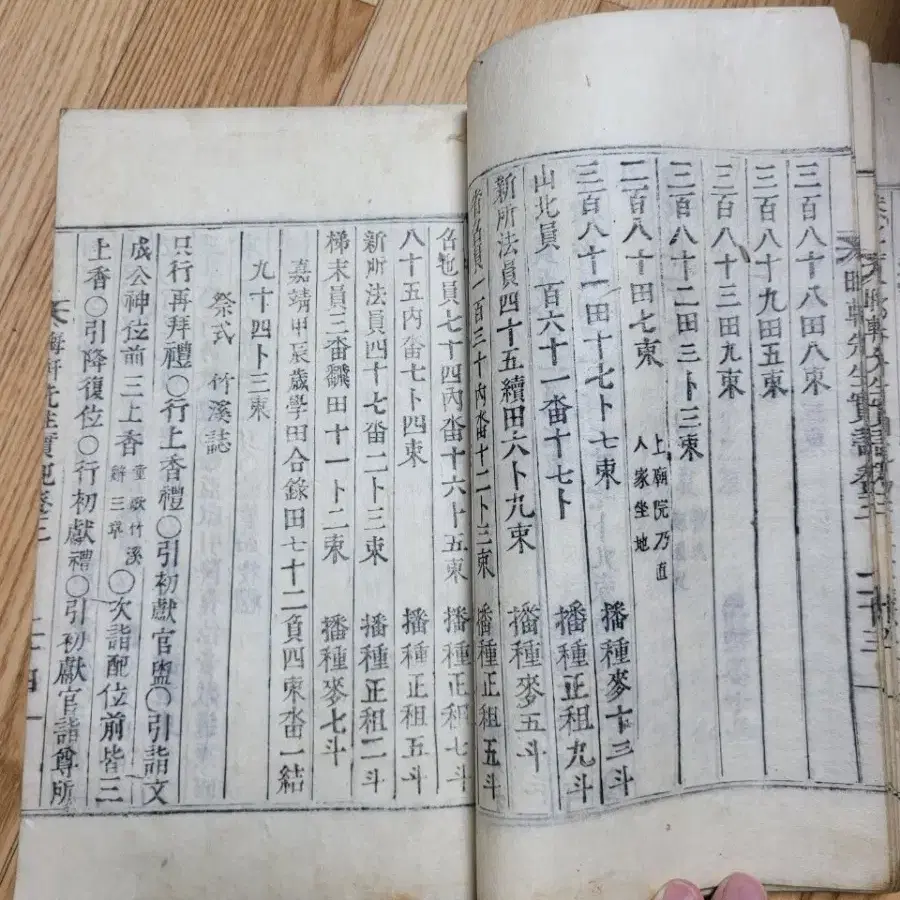 晦軒先生實記卷三 二十三
三百八十八田八束
三百八十九田五束
三百八十三田九束
三百八十二田三卜三束
二百八十田七束 上廟院乃直
人家坐地
三百八十一田十七卜七束 播種麥十三斗
山北員一百六十一畓十七卜 播種正租九斗
新所法員四十五續田六卜九束 播種麥五斗
員一百三十內畓十二卜三束 播種正租五斗
也員七十四內畓十六卜五束 播種正租七斗
八十五內畓七卜四束 播種正租五斗
新所法員四十七畓二卜三束 播種正租二斗
梯末員三畓飜田十一卜二束 播種麥七斗
嘉靖甲辰歲學田合錄田七十二負四束畓一結
九十四卜三束
祭式 竹溪誌
只行再拜禮○行上香禮○引初獻官盥○引詣文
成公神位前三上香 重歌竹溪辭三章 ○次詣配位前皆三
上香○引降復位○行初獻禮○引初獻官詣尊所
晦軒先生實記卷三 二十四